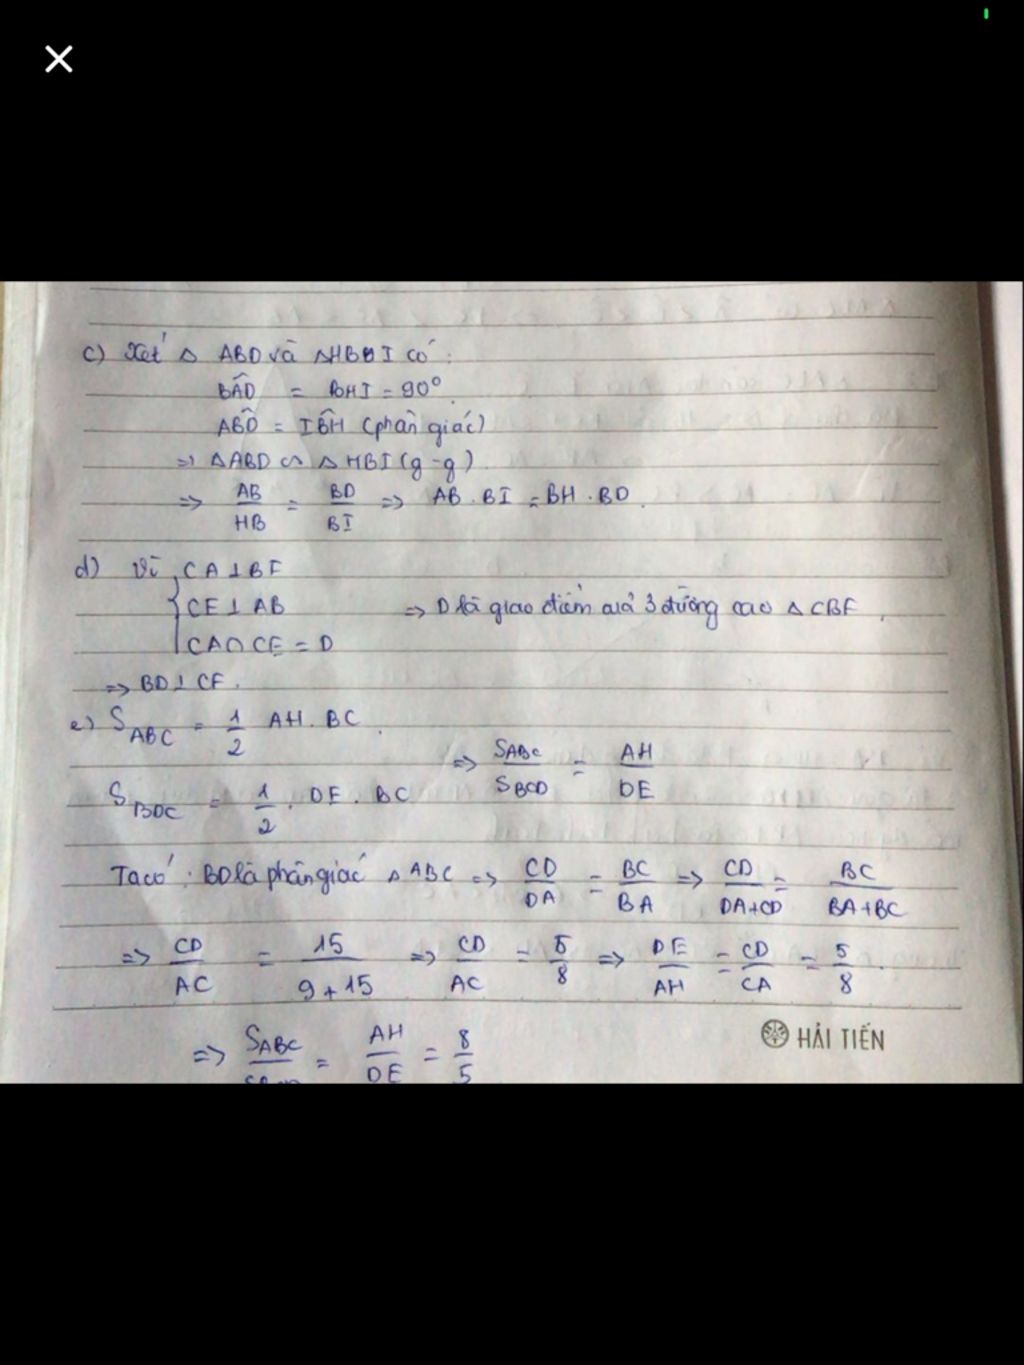 c) Xét △ ABD và △HBI có:
BÂD = BHI = 90°
ABD̂ = IB̂H (phân giác)
=> △ABD ∽ △HBI (g-g)
=> AB/HB = BD/BI => AB . BI = BH . BD.
d) Vì { CA⊥BF
CE ⊥ AB => D là giao điểm của 3 đường cao △ CBF.
CA∩CE = D
=> BD⊥CF.
e) S_ABC = 1/2 AH. BC.
=> S_ABC/S_BCD = AH/DE
S_BDC = 1/2 . DE . BC
Ta có: BD là phân giác △ABC => CD/DA = BC/BA => CD/DA+CD = BC/BA+BC
=> CD/AC = 15/9+15 => CD/AC = 5/8 => DE/AH = CD/CA = 5/8.
HẢI TIẾN
=> S_ABC/ = AH/DE = 8/5